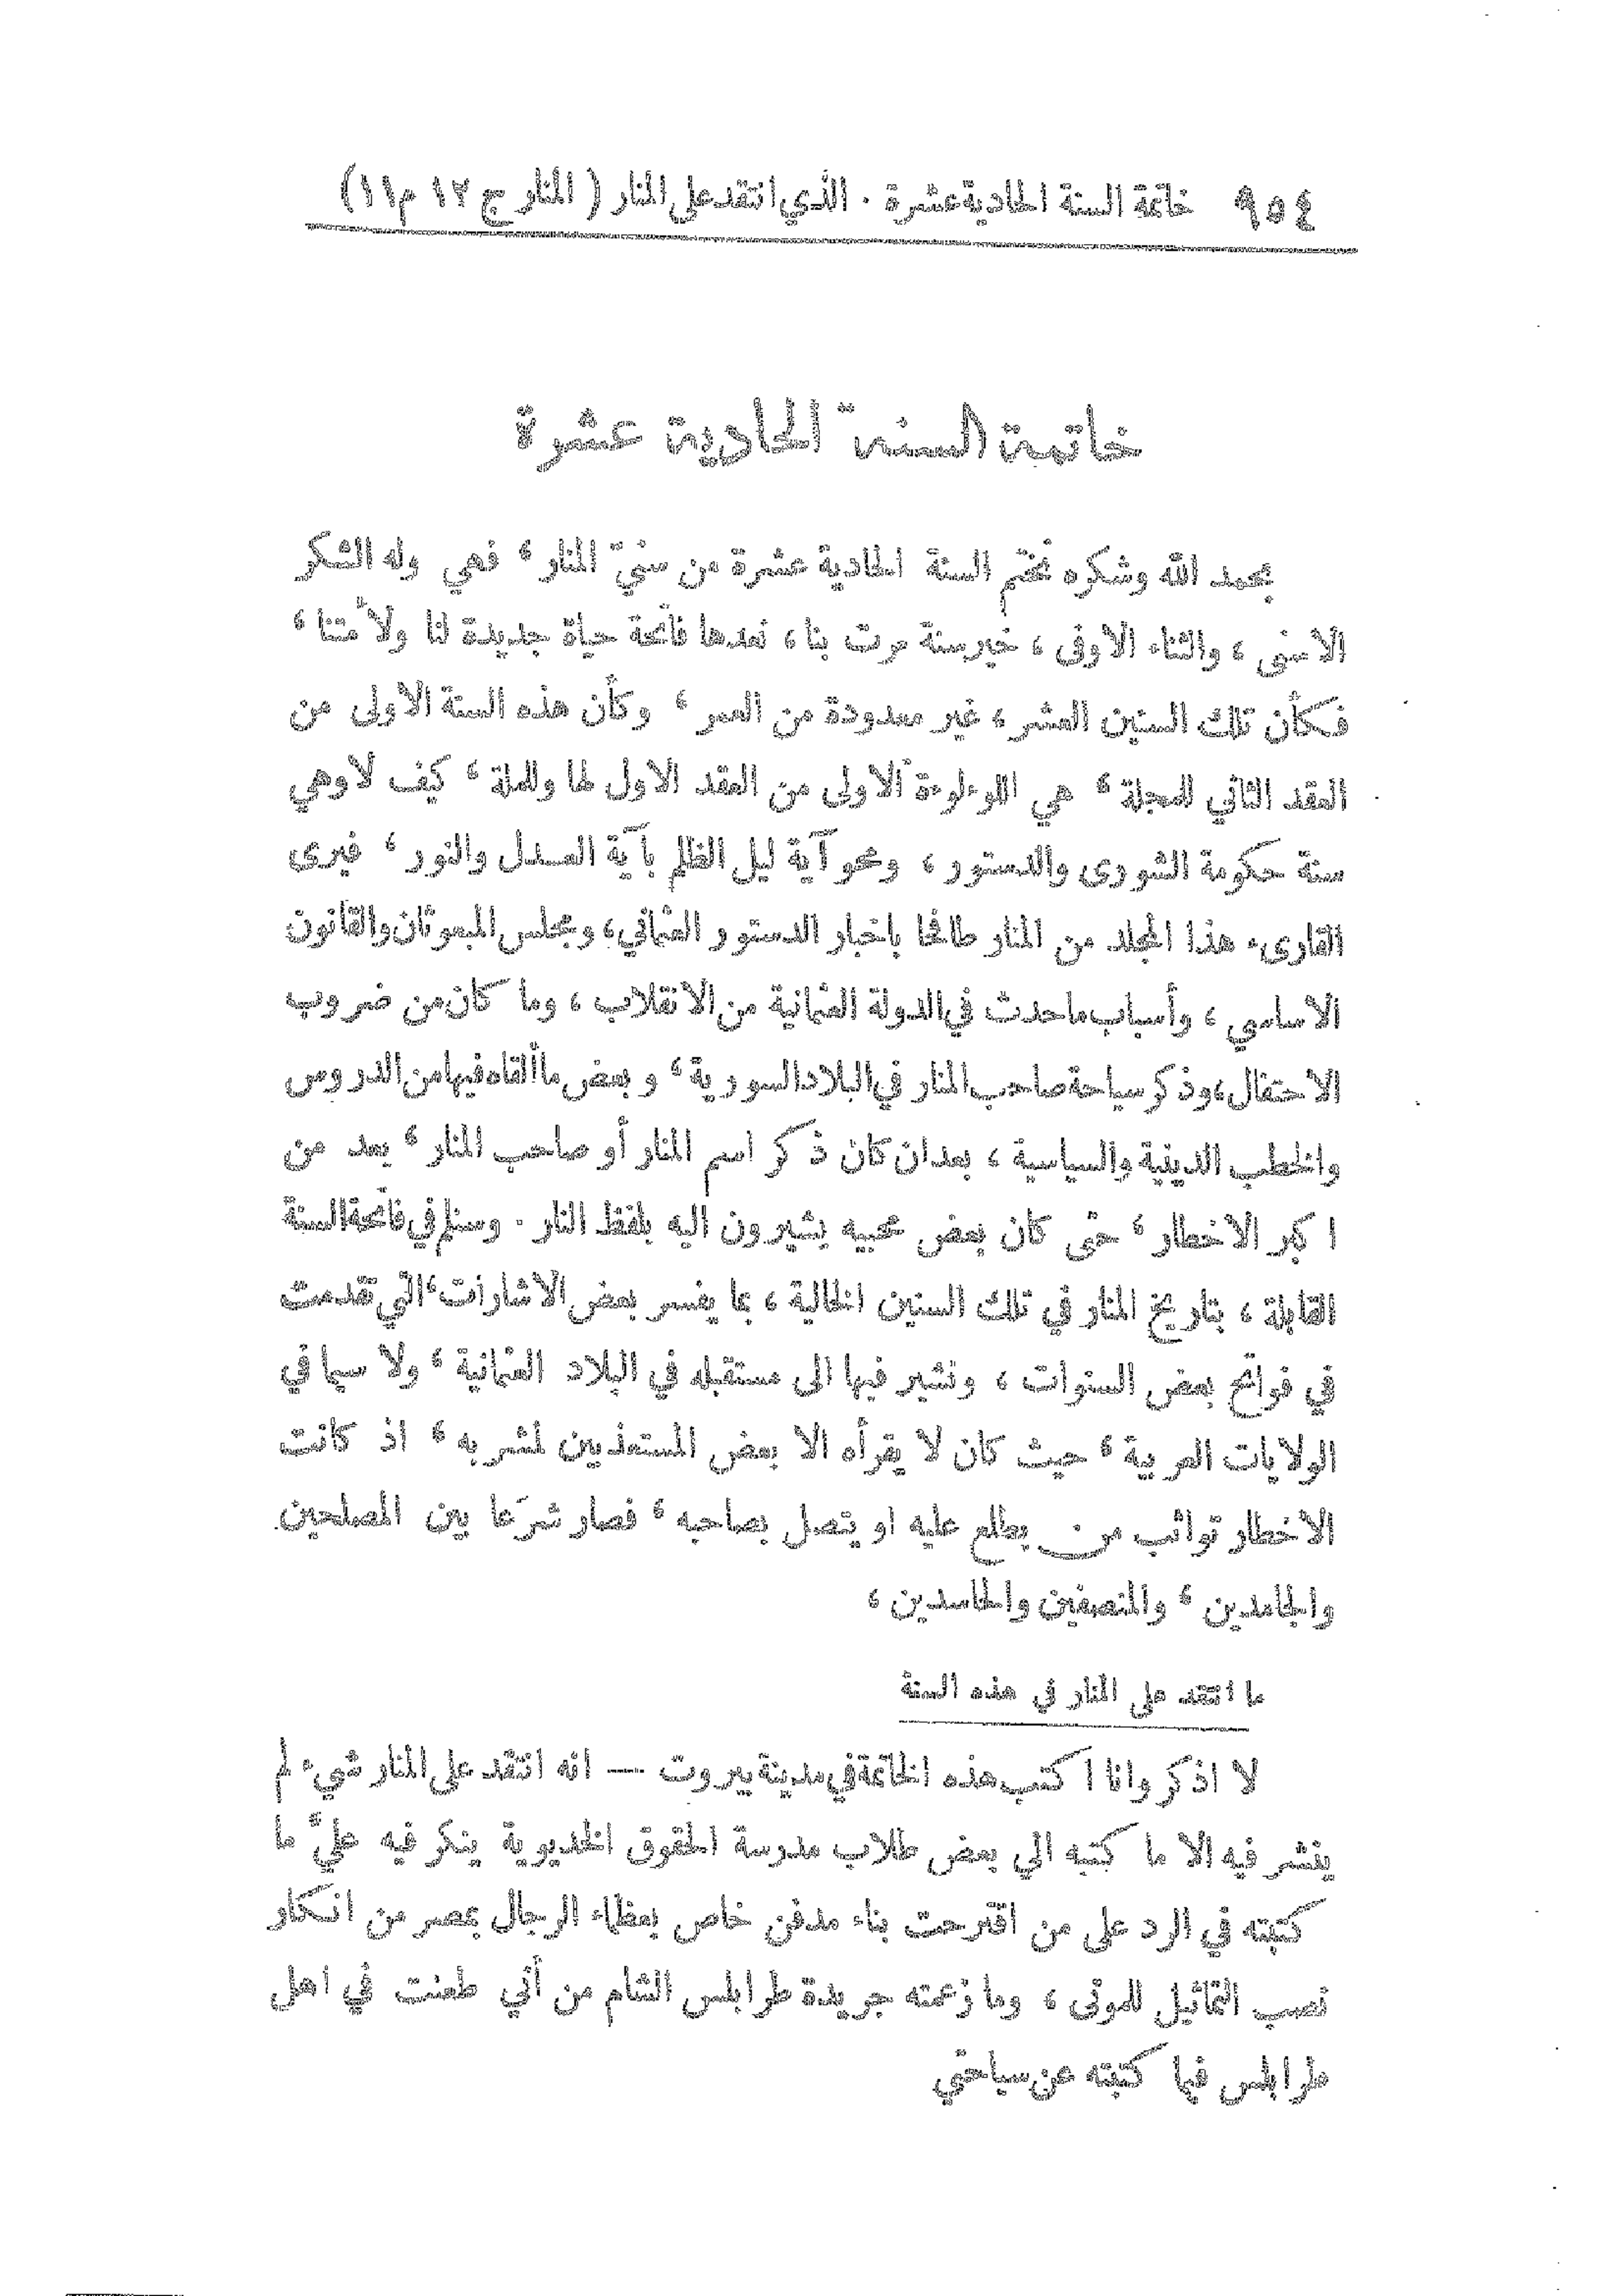 ٩٥٤ خاتمة السنة الحادية عشرة . الذي انتقد على المنار ( المنار ج ١٢ م ١١)
خاتمة السنة الحادية عشرة
بحمد الله وشكره نختم السنة الحادية عشرة من سنيّ المنار ، فهي وله الشكر
الاسنى ، والثناء الاوفى ، خير سنة مرت بنا ، نعدها فاتحة حياة جديدة لنا ولأمتنا ،
فكأن تلك السنين العشر ، غير معدودة من العمر ، وكأن هذه السنة الأولى من
العقد الثاني للمجلة ، هي اللوءلوءة الاولى من العقد الاول لها وللملة ، كيف لا وهي
سنة حكومة الشورى والدستور ، ومحو آية ليل الظلم بآية العدل والنور ، فيرى
القارىء هذا المجلد من المنار طافحا باخبار الدستور العثماني ، ومجلس المبعوثان والقانون
الاساسي ، وأسباب ما حدث في الدولة العثمانية من الانقلاب ، وما كان من ضروب
الاحتفال ، وذكر سياحة صاحب المنار في البلاد السورية ، وبعض ما ألقاه فيها من الدروس
والخطب الدينية والسياسية ، بعد ان كان ذكر اسم المنار أو صاحب المنار ، يعد من
اكبر الاخطار ، حتى كان بعض محبيه يشيرون اليه بلفظ النار . وسنلم في فاتحة السنة
القابلة ، بتاريخ المنار في تلك السنين الخالية ، بما يفسر بعض الاشارات ، التي تقدمت
في فواتح بعض السنوات ، ونشير فيها الى مستقبله في البلاد العثمانية ، ولا سيما في
الولايات العربية ، حيث كان لا يقرأه الا بعض المستعذبين لمشربه ، اذ كانت
الاخطار تواثب من يطلع عليه او يتصل بصاحبه ، فصار شرَعا بين المصلحين
والجامدين ، والمنصفين والحاسدين ،
ما انتقد على المنار في هذه السنة
لا اذكر وانا اكتب هذه الخاتمة في مدينة بيروت — انه انتقد على المنار شيء لم
ينشر فيه الا ما كتبه الي بعض طلاب مدرسة الحقوق الخديوية ينكر فيه عليَّ ما
كتبته في الرد على من اقترحت بناء مدفن خاص بعظماء الرجال بمصر من انكار
نصب التماثيل للموتى ، وما زعمته جريدة طرابلس الشام من أني طعنت في اهل
طرابلس فيما كتبته عن سياحتي